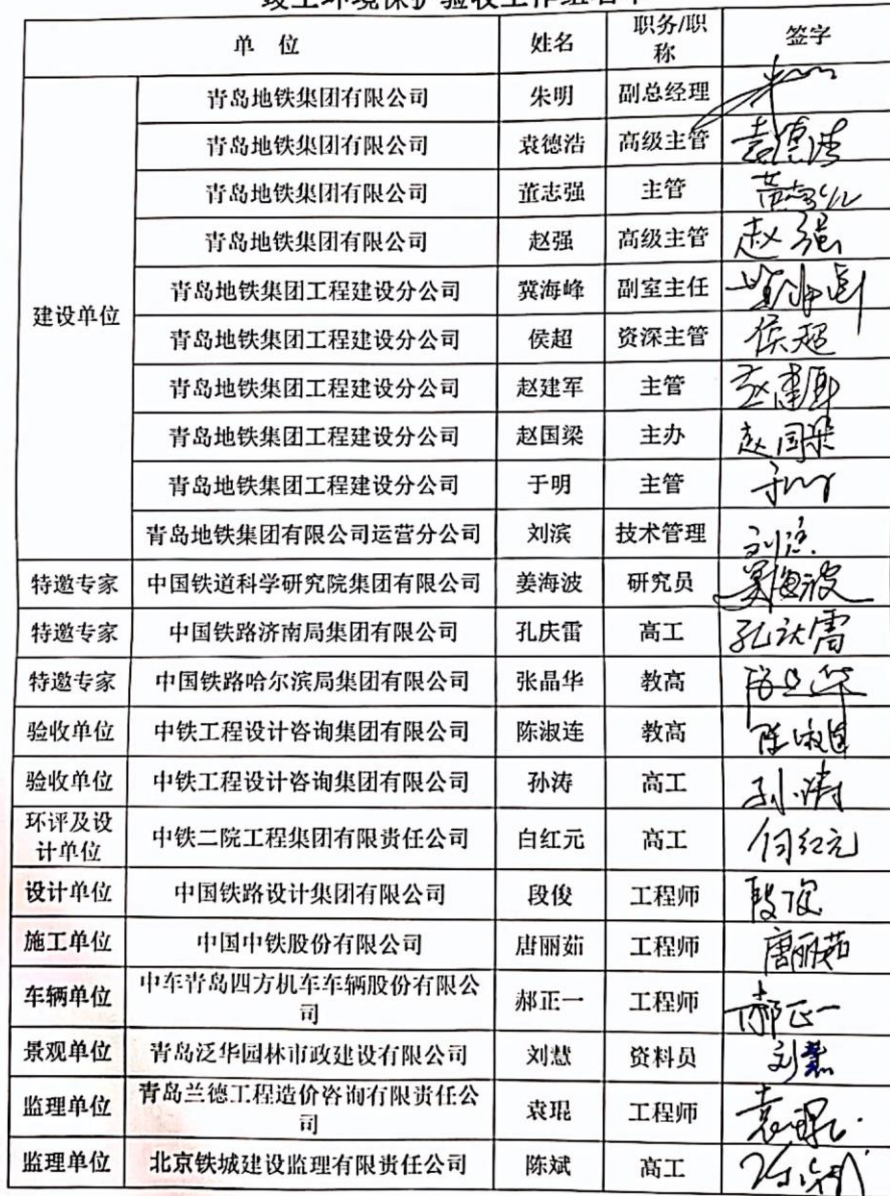 竣工环境保护验收工作组名单
单 位 姓名 职务/职称 签字
建设单位
青岛地铁集团有限公司 朱明 副总经理
青岛地铁集团有限公司 袁德浩 高级主管 袁德浩
青岛地铁集团有限公司 董志强 主管
青岛地铁集团有限公司 赵强 高级主管 赵强
青岛地铁集团工程建设分公司 冀海峰 副室主任
青岛地铁集团工程建设分公司 侯超 资深主管 侯超
青岛地铁集团工程建设分公司 赵建军 主管 赵建军
青岛地铁集团工程建设分公司 赵国梁 主办 赵国梁
青岛地铁集团工程建设分公司 于明 主管 于明
青岛地铁集团有限公司运营分公司 刘滨 技术管理 刘滨
特邀专家 中国铁道科学研究院集团有限公司 姜海波 研究员 姜海波
特邀专家 中国铁路济南局集团有限公司 孔庆雷 高工 孔庆雷
特邀专家 中国铁路哈尔滨局集团有限公司 张晶华 教高
验收单位 中铁工程设计咨询集团有限公司 陈淑连 教高 陈淑连
验收单位 中铁工程设计咨询集团有限公司 孙涛 高工 孙涛
环评及设计单位 中铁二院工程集团有限责任公司 白红元 高工 白红元
设计单位 中国铁路设计集团有限公司 段俊 工程师 段俊
施工单位 中国中铁股份有限公司 唐丽茹 工程师 唐丽茹
车辆单位 中车青岛四方机车车辆股份有限公司 郝正一 工程师 郝正一
景观单位 青岛泛华园林市政建设有限公司 刘慧 资料员 刘慧
监理单位 青岛兰德工程造价咨询有限责任公司 袁琨 工程师 袁琨
监理单位 北京铁城建设监理有限责任公司 陈斌 高工